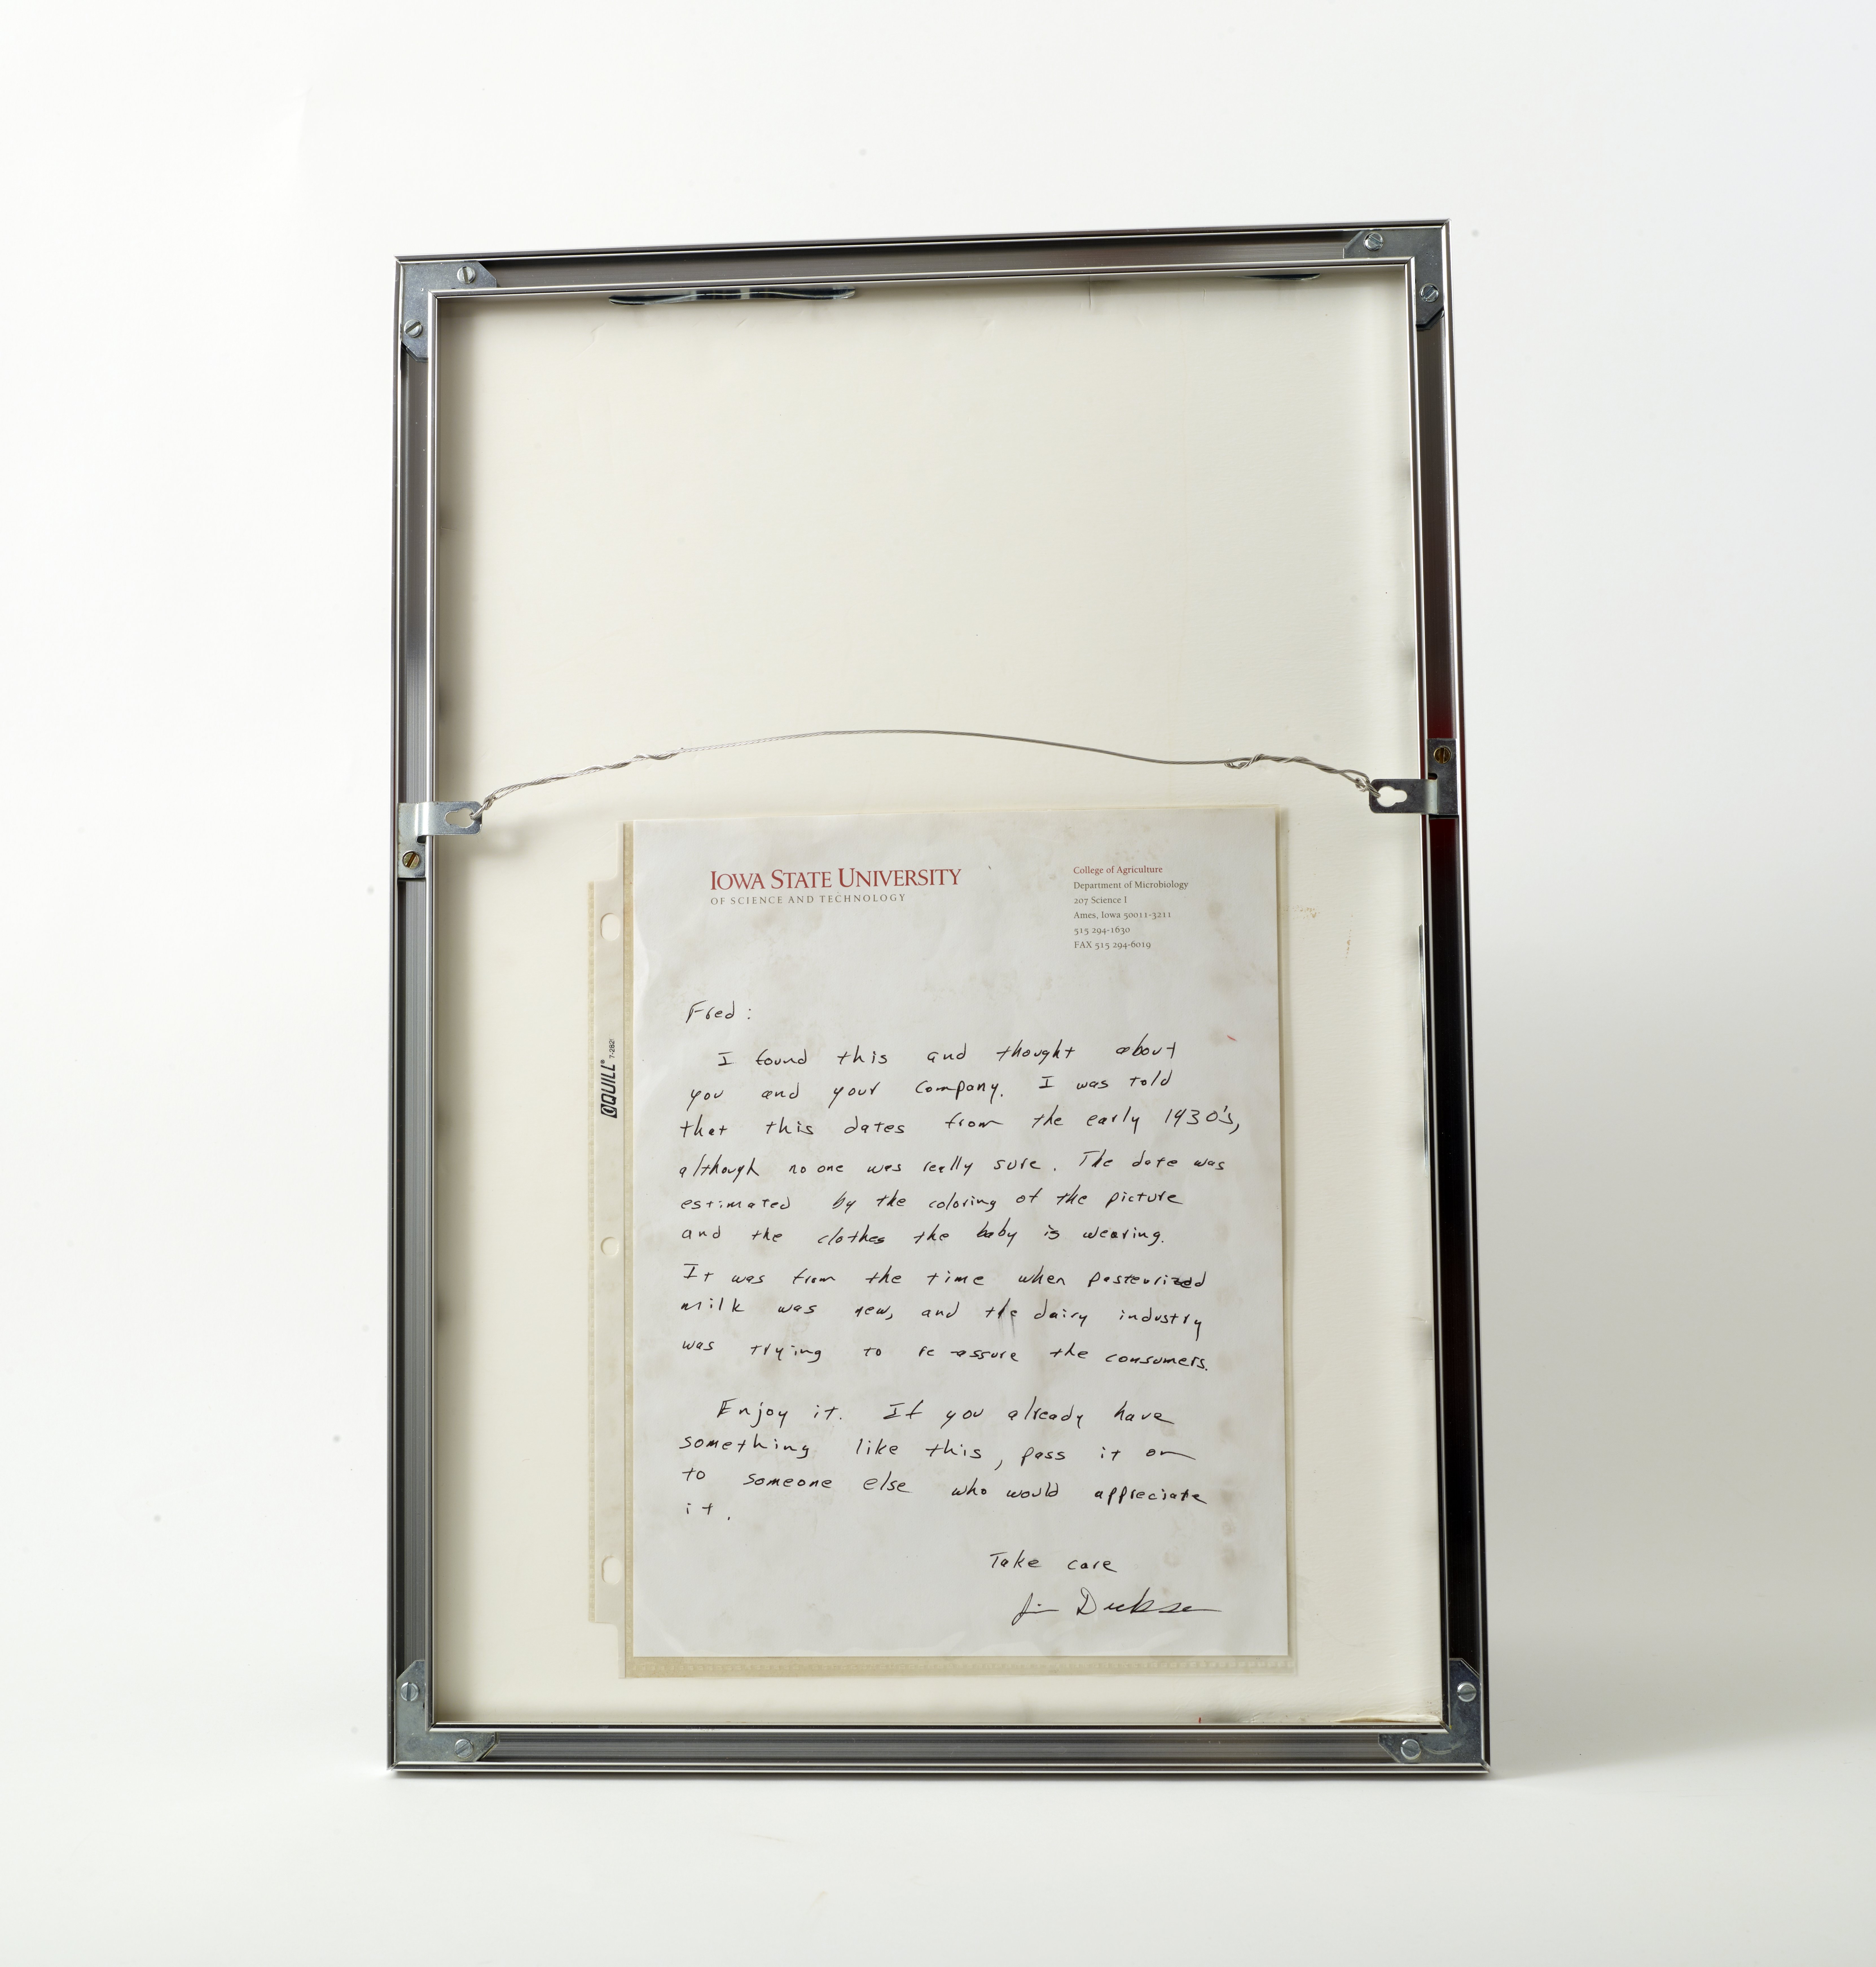 IOWA STATE UNIVERSITY
OF SCIENCE AND TECHNOLOGY
College of Agriculture
Department of Microbiology
207 Science I
Ames, Iowa 50011-3211
515 294-1630
FAX 515 294-6019
QUILL® 7-282
Fred:
I found this and thought about
you and your company. I was told
that this dates from the early 1930's,
although no one was really sure. The date was
estimated by the coloring of the picture
and the clothes the baby is wearing.
It was from the time when pasteurized
milk was new, and the dairy industry
was trying to re assure the consumers.
Enjoy it. If you already have
something like this, pass it on
to someone else who would appreciate
it.
Take care
Jim Dickson